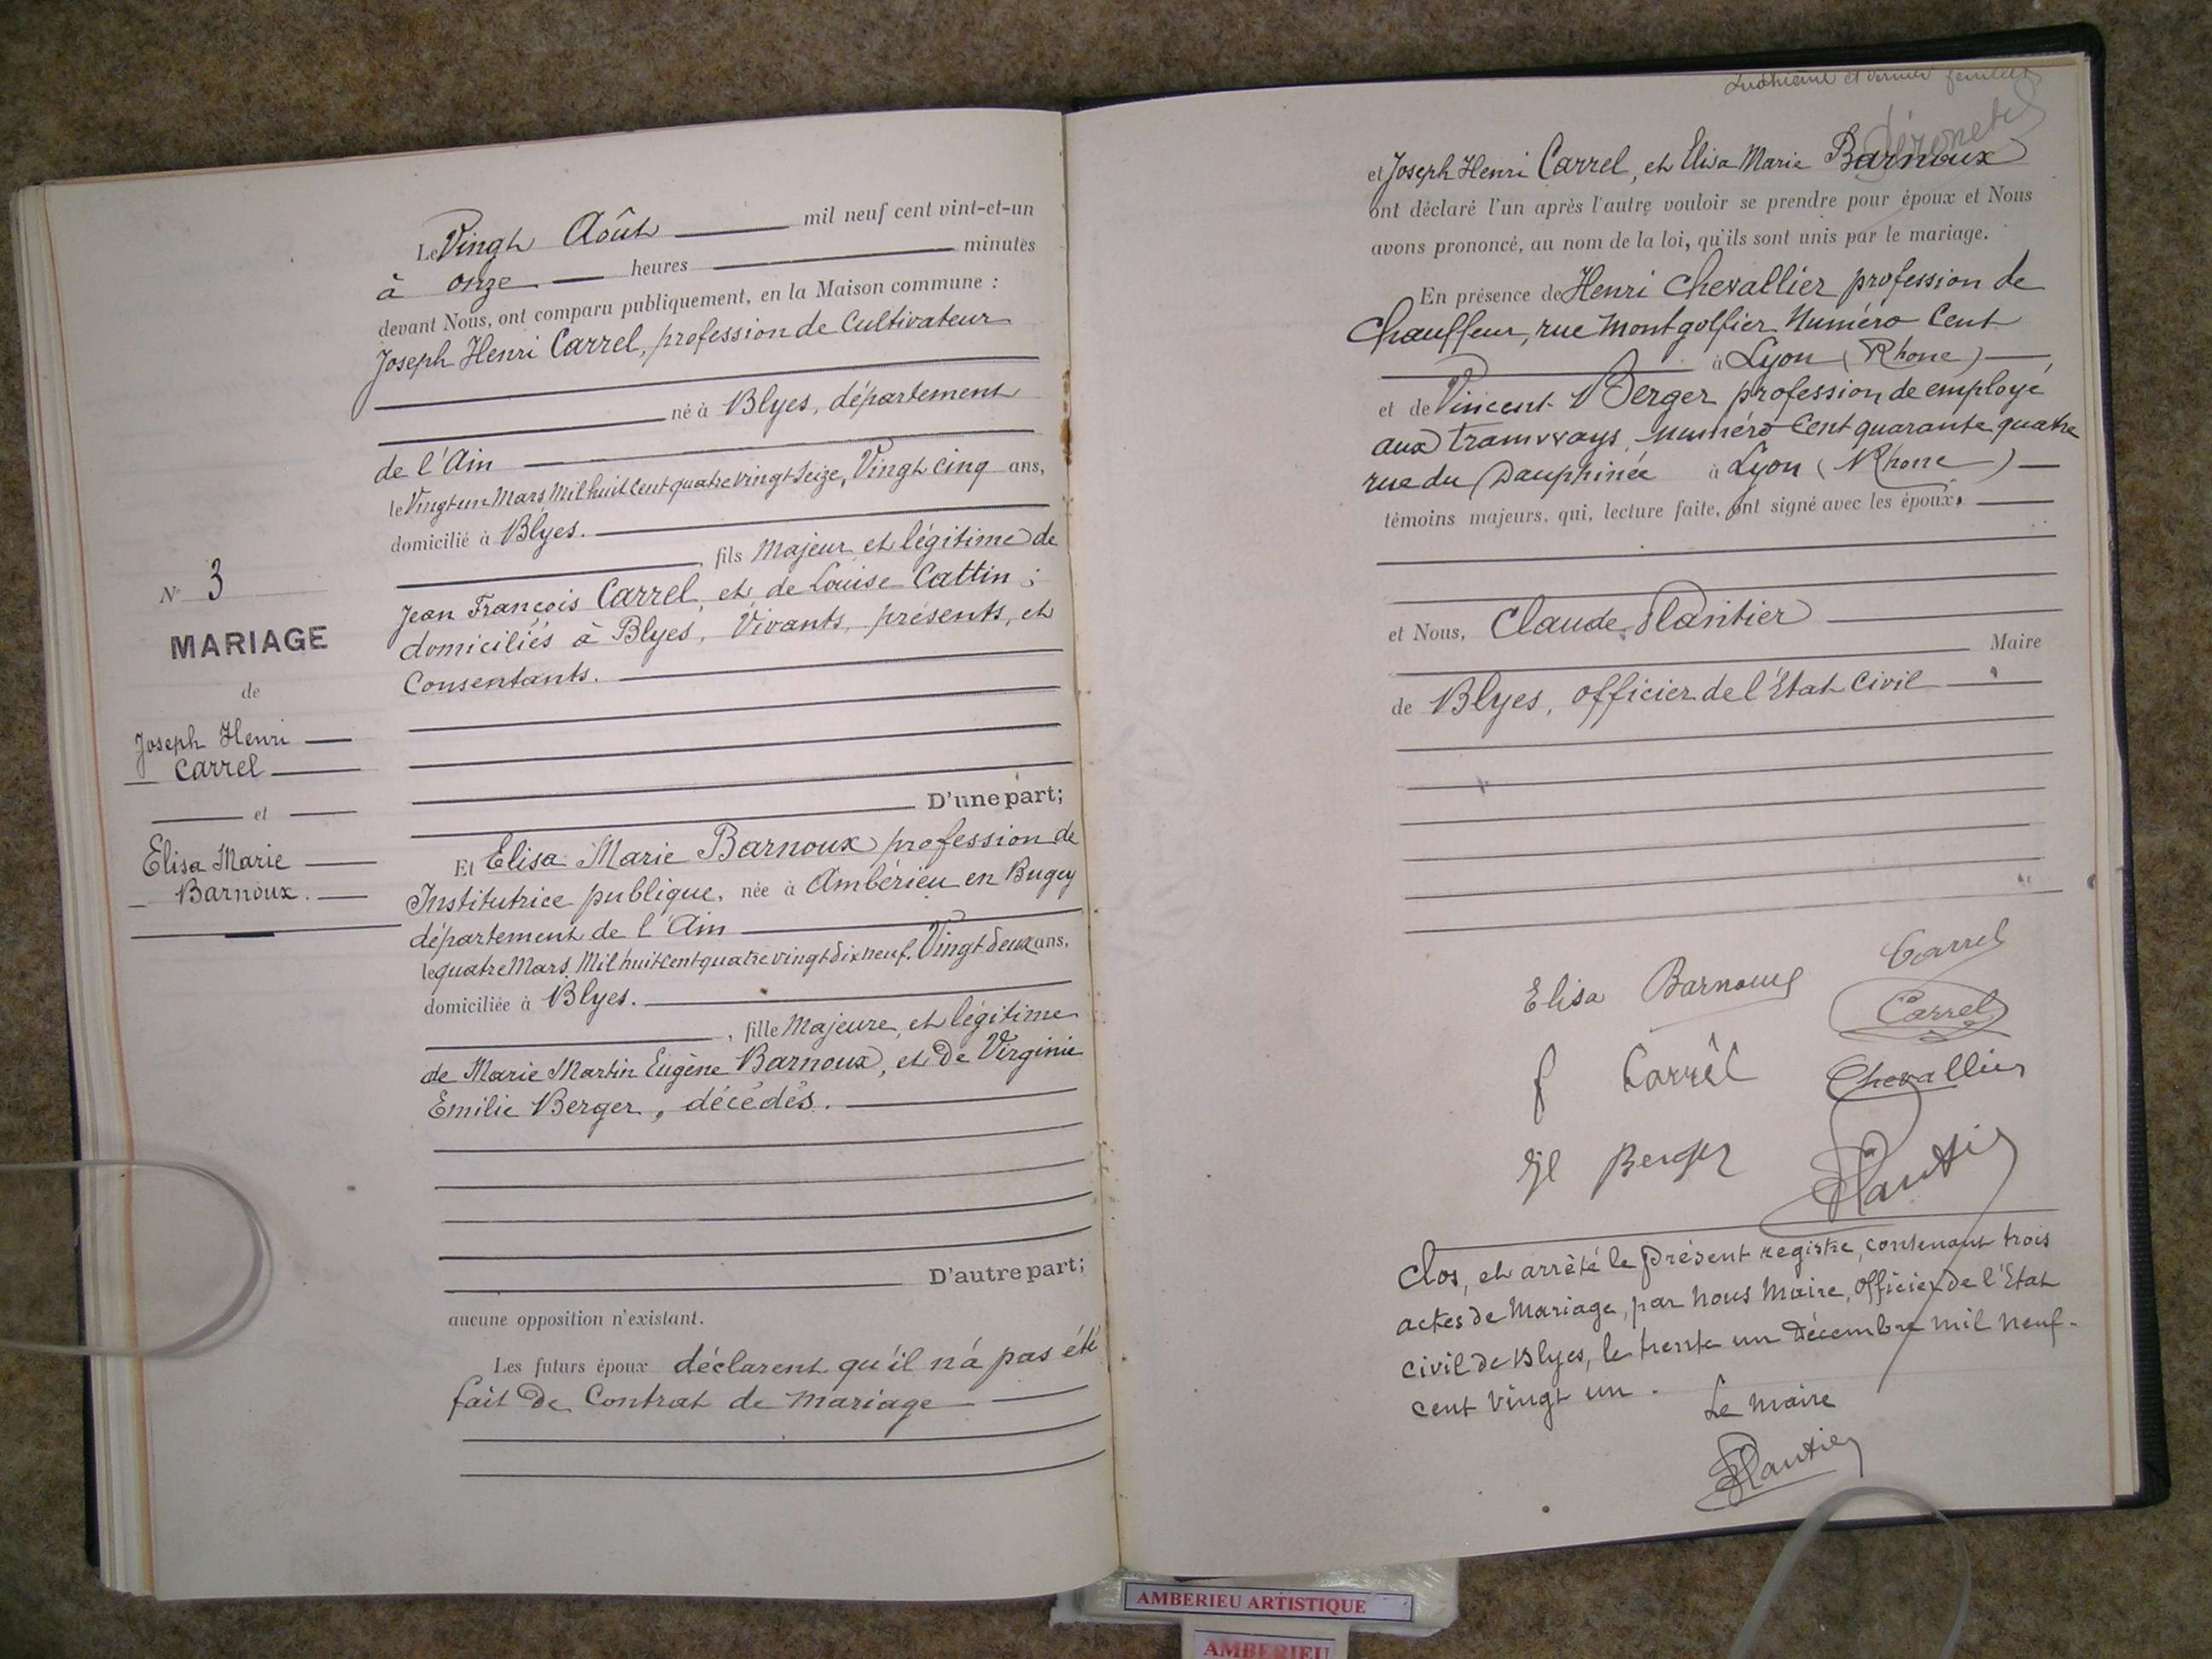 Le Vingt Août mil neuf cent vint-et-un
à onze heures minutes
devant Nous, ont comparu publiquement, en la Maison commune :
Joseph Henri Carrel, profession de Cultivateur
né à Blyes, département
de l'Ain
le Vingt un Mars Mil huit Cent quatre vingt Seize, Vingt Cinq ans,
domicilié à Blyes.
fils Majeur et légitime de
Jean François Carrel, et de Louise Cattin ;
domiciliés à Blyes, Vivants, présents, et
Consentants.
D'une part;
Et Elisa Marie Barnoux profession de
Institutrice publique, née à Ambérieu en Bugey
département de l'Ain
le quatre Mars Mil huit Cent quatre vingt dix neuf. Vingt deux ans,
domiciliée à Blyes.
, fille Majeure, et légitime
de Marie Martin Eugène Barnoux, et de Virginie
Emilie Berger, décédés.
D'autre part;
aucune opposition n'existant.
Les futurs époux déclarent qu'il n'a pas été
fait de Contrat de mariage
N° 3
MARIAGE
de
Joseph Henri
Carrel
et
Elisa Marie
Barnoux.
et Joseph Henri Carrel, et Elisa Marie Barnoux
ont déclaré l'un après l'autre vouloir se prendre pour époux et Nous
avons prononcé, au nom de la loi, qu'ils sont unis par le mariage.
En présence de Henri Chevallier profession de
Chauffeur, rue Montgolfier Numéro Cent
à Lyon (Rhone)
et de Vincent Berger profession de employé
aux tramways numéro Cent quarante quatre
rue du Dauphinée à Lyon (Rhone)
témoins majeurs, qui, lecture faite, ont signé avec les époux.
et Nous, Claude Plantier
Maire
de Blyes, officier de l'Etat Civil
Elisa Barnoux Carrel
Carrel
Carrel Chevallier
Berger Plantier
Clos, et arrêté le présent registre, contenant trois
actes de Mariage, par nous Maire, officier de l'Etat
civil de Blyes, le trente un Décembre mil neuf-
cent vingt un.
Le maire
Plantier
AMBERIEU ARTISTIQUE
AMBERIEU